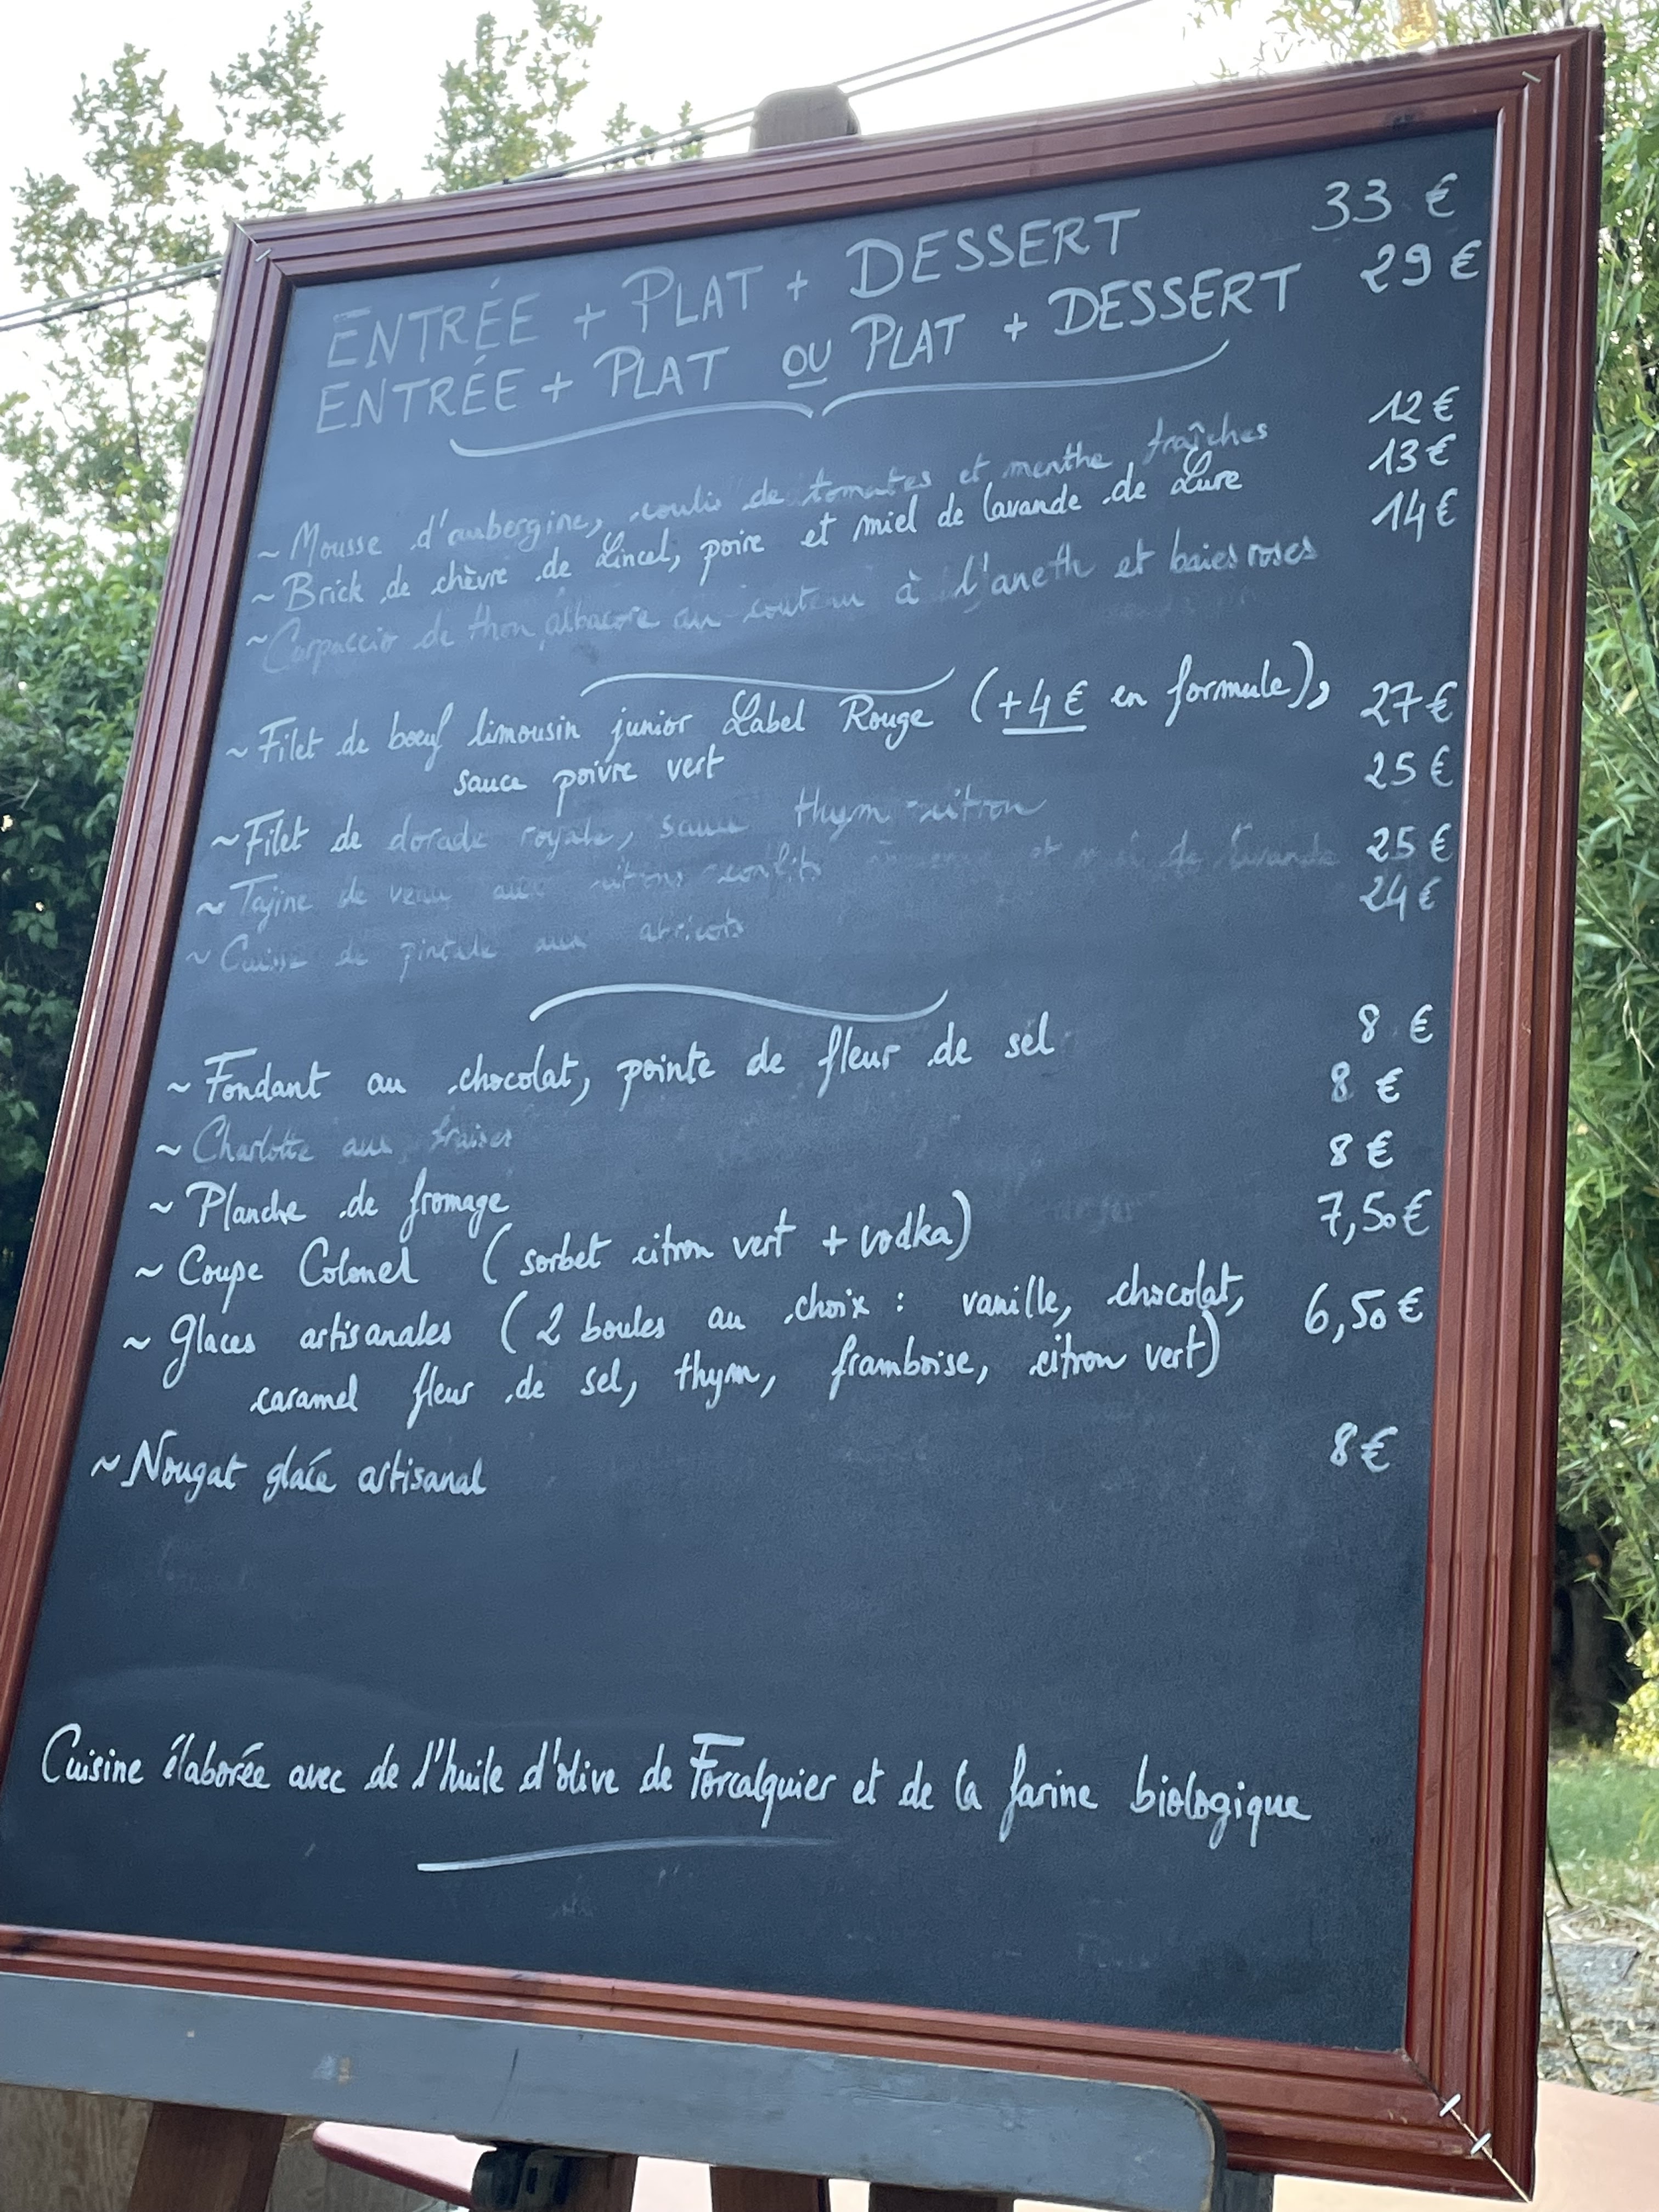 ENTRÉE + PLAT + DESSERT 33 €
ENTRÉE + PLAT OU PLAT + DESSERT 29 €
~ Mousse d'aubergine, coulis de tomates et menthe fraîches 12 €
~ Brick de chèvre de Lincel, poire et miel de lavande de Lure 13 €
~ Carpaccio de thon albacore au couteau à l'aneth et baies roses 14 €
~ Filet de bœuf limousin junior Label Rouge (+4 € en formule), 27 €
sauce poivre vert
~ Filet de dorade royale, sauce thym citron 25 €
~ Tajine de veau aux citrons confits 25 €
~ Cuisse de pintade aux abricots 24 €
~ Fondant au chocolat, pointe de fleur de sel 8 €
~ Charlotte aux fraises 8 €
~ Planche de fromage 8 €
~ Coupe Colonel (sorbet citron vert + vodka) 7,50 €
~ Glaces artisanales (2 boules au choix : vanille, chocolat, 6,50 €
caramel fleur de sel, thym, framboise, citron vert)
~ Nougat glacé artisanal 8 €
Cuisine élaborée avec de l'huile d'olive de Forcalquier et de la farine biologique